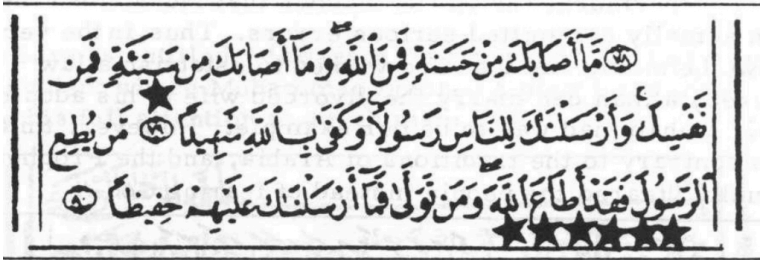 ﴿٧٨﴾ مَّآ أَصَابَكَ مِنْ حَسَنَةٍ فَمِنَ ٱللَّهِ وَمَآ أَصَابَكَ مِن سَيِّئَةٍ فَمِن
نَّفْسِكَ وَأَرْسَلْنَٰكَ لِلنَّاسِ رَسُولًا وَكَفَىٰ بِٱللَّهِ شَهِيدًا ﴿٧٩﴾ مَّن يُطِعِ
ٱلرَّسُولَ فَقَدْ أَطَاعَ ٱللَّهَ وَمَن تَوَلَّىٰ فَمَآ أَرْسَلْنَٰكَ عَلَيْهِمْ حَفِيظًا ﴿٨٠﴾